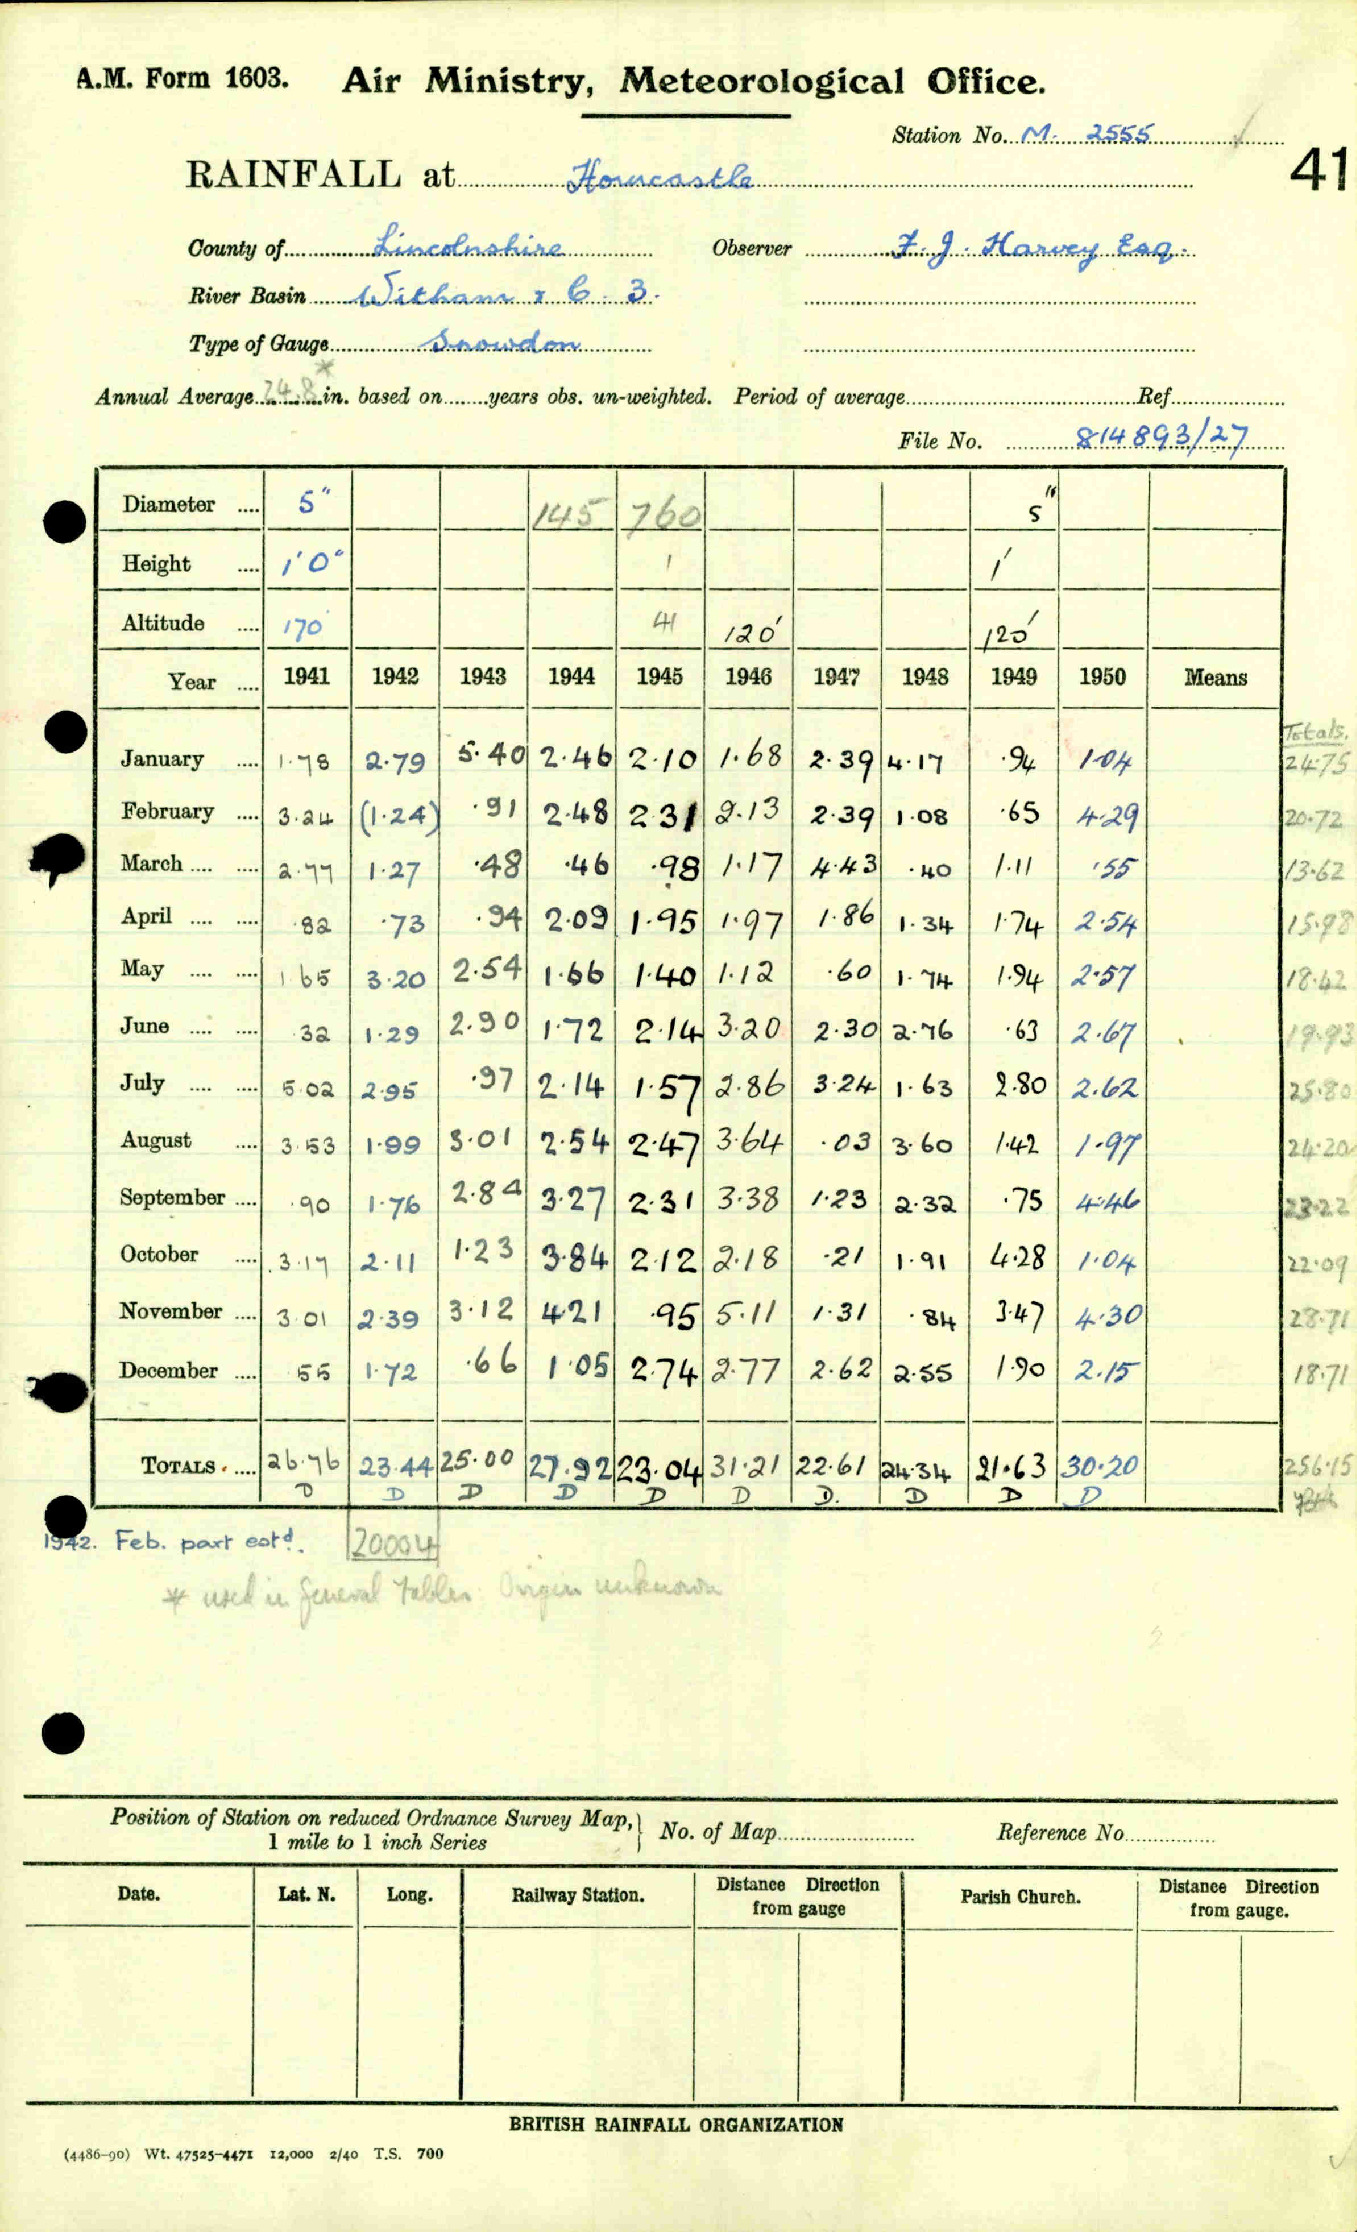 A.M. Form 1603. Air Ministry, Meteorological Office.
Station No. M. 2555
41
RAINFALL at Horncastle
County of Lincolnshire Observer F. J. Harvey Esq.
River Basin Witham & C. 3.
Type of Gauge Snowdon
Annual Average 24.8* in. based on years obs. un-weighted. Period of average Ref.
File No. 814893/27
Diameter .... 5" 145 760 5"
Height .... 1'0" 1 1'
Altitude .... 170 41 120' 120'
Year .... 1941 1942 1943 1944 1945 1946 1947 1948 1949 1950 Means
Totals.
January .... 1.78 2.79 5.40 2.46 2.10 1.68 2.39 4.17 .94 1.04 24.75
February .... 3.24 (1.24) .91 2.48 2.31 2.13 2.39 1.08 .65 4.29 20.72
March .... .... 2.77 1.27 .48 .46 .98 1.17 4.43 .40 1.11 .55 13.62
April .... .... .82 .73 .94 2.09 1.95 1.97 1.86 1.34 1.74 2.54 15.98
May .... .... 1.65 3.20 2.54 1.66 1.40 1.12 .60 1.74 1.94 2.57 18.42
June .... .... .32 1.29 2.90 1.72 2.14 3.20 2.30 2.76 .63 2.67 19.93
July .... .... 5.02 2.95 .97 2.14 1.57 2.86 3.24 1.63 2.80 2.62 25.80
August .... 3.53 1.99 3.01 2.54 2.47 3.64 .03 3.60 1.42 1.97 24.20
September .... .90 1.76 2.84 3.27 2.31 3.38 1.23 2.32 .75 4.46 23.22
October .... 3.17 2.11 1.23 3.84 2.12 2.18 .21 1.91 4.28 1.04 22.09
November .... 3.01 2.39 3.12 4.21 .95 5.11 1.31 .84 3.47 4.30 28.71
December .... .55 1.72 .66 1.05 2.74 2.77 2.62 2.55 1.90 2.15 18.71
TOTALS .... 26.76 23.44 25.00 27.92 23.04 31.21 22.61 24.34 21.63 30.20 256.15
D D D D D D D. D D D
1942. Feb. part estd. 20004
* used in General Tables. Origin unknown
Position of Station on reduced Ordnance Survey Map, } No. of Map Reference No.
1 mile to 1 inch Series
Date. Lat. N. Long. Railway Station. Distance Direction from gauge Parish Church. Distance Direction from gauge.
BRITISH RAINFALL ORGANIZATION
(4486-90) Wt. 47525-4471 12,000 2/40 T.S. 700